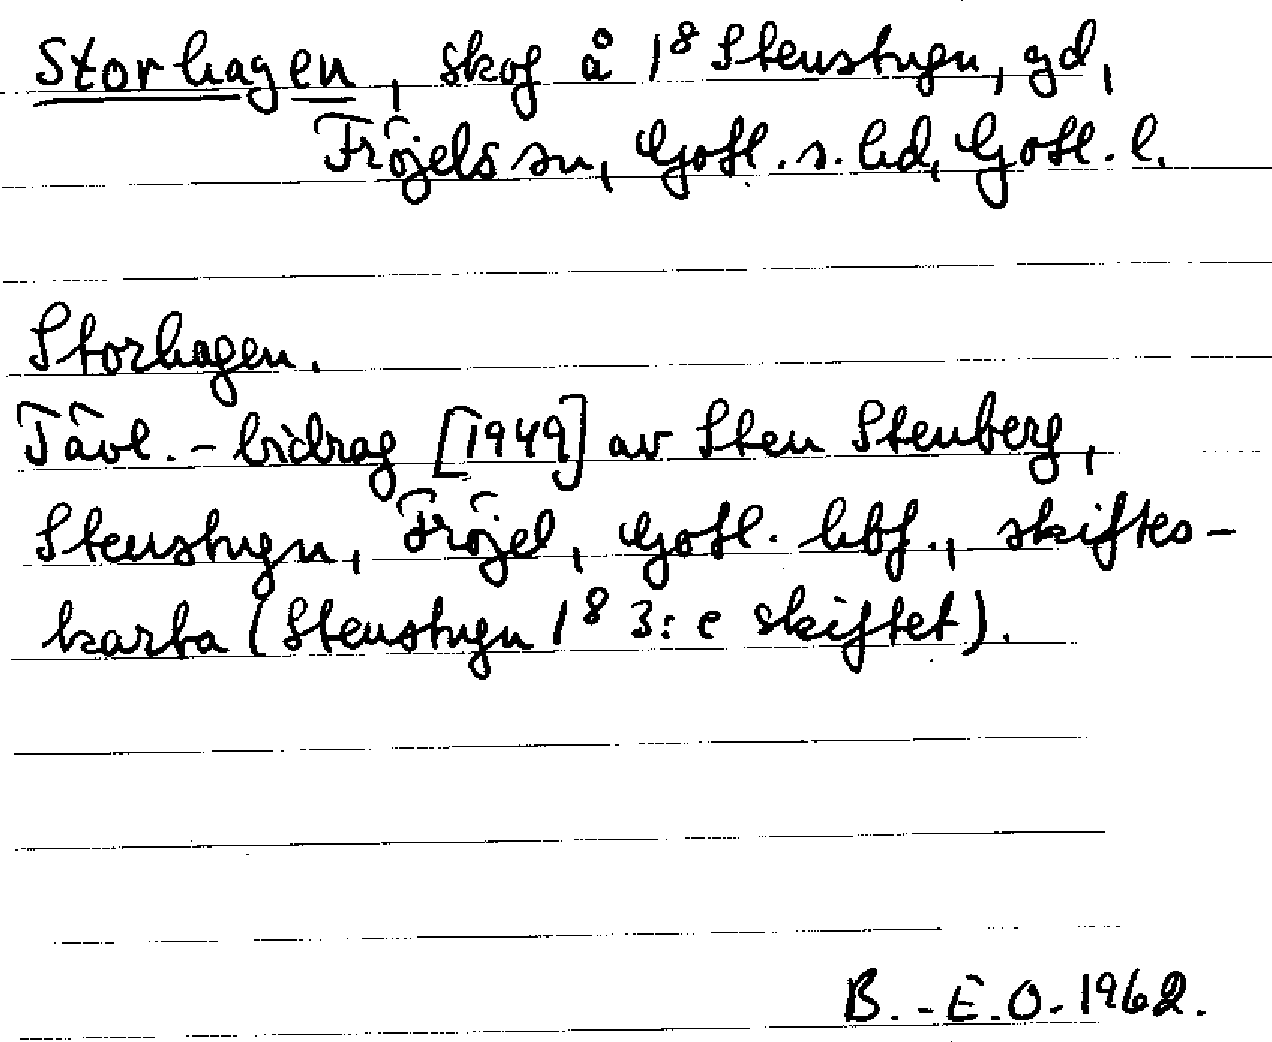 Storhagen, skog å 1⁸ Stenstugu, gd,
Fröjels sn, Gotl. s. hd, Gotl. l.
Storhagen.
Tävl.-bidrag [1949] av Sten Stenberg,
Stenstugu, Fröjel, Gotl. hbf., skiftes-
karta (Stenstugu 1⁸ 3:e skiftet).
B.-E.O. 1962.